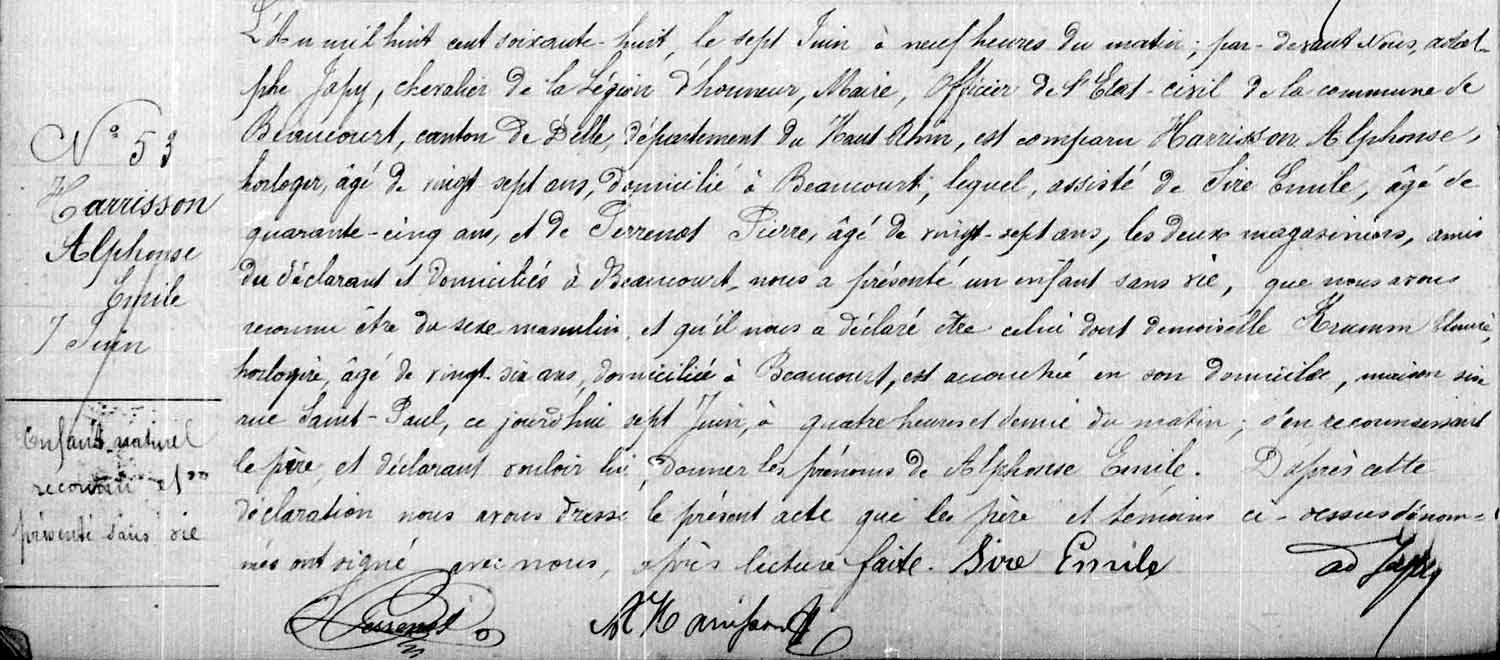 N° 53
Harrisson
Alphonse
Emile
7 Juin
Enfant naturel
reconnu et
présenté sans vie
L'An mil huit cent soixante-huit, le sept Juin à neuf heures du matin; par-devant Nous, adol-
phe Japy, chevalier de la Légion d'honneur, Maire, Officier de l'Etat-civil de la commune de
Beaucourt, canton de Delle, département du Haut Rhin, est comparu Harrisson Alphonse,
horloger, âgé de vingt sept ans, domicilié à Beaucourt; lequel, assisté de Sire Emile, âgé de
quarante-cinq ans, et de Perrenot Pierre, âgé de vingt-sept ans, les deux magasiniers, amis
du déclarant et domiciliés à Beaucourt, nous a présenté un enfant sans vie, que nous avons
reconnu être du sexe masculin, et qu'il nous a déclaré être celui dont demoiselle Krumm
horlogère, âgé de vingt-six ans, domiciliée à Beaucourt, est accouchée en son domicile, maison sise
rue Saint-Paul, ce jourd'hui sept Juin, à quatre heures et demie du matin; s'en reconnaissant
le père, et déclarant vouloir lui donner les prénoms de Alphonse Emile. D'après cette
déclaration nous avons dressé le présent acte que les père et témoins ci-dessus dénom-
més ont signé avec nous, après lecture faite. Sire Emile ad Japy
Perrenot A Harrisson